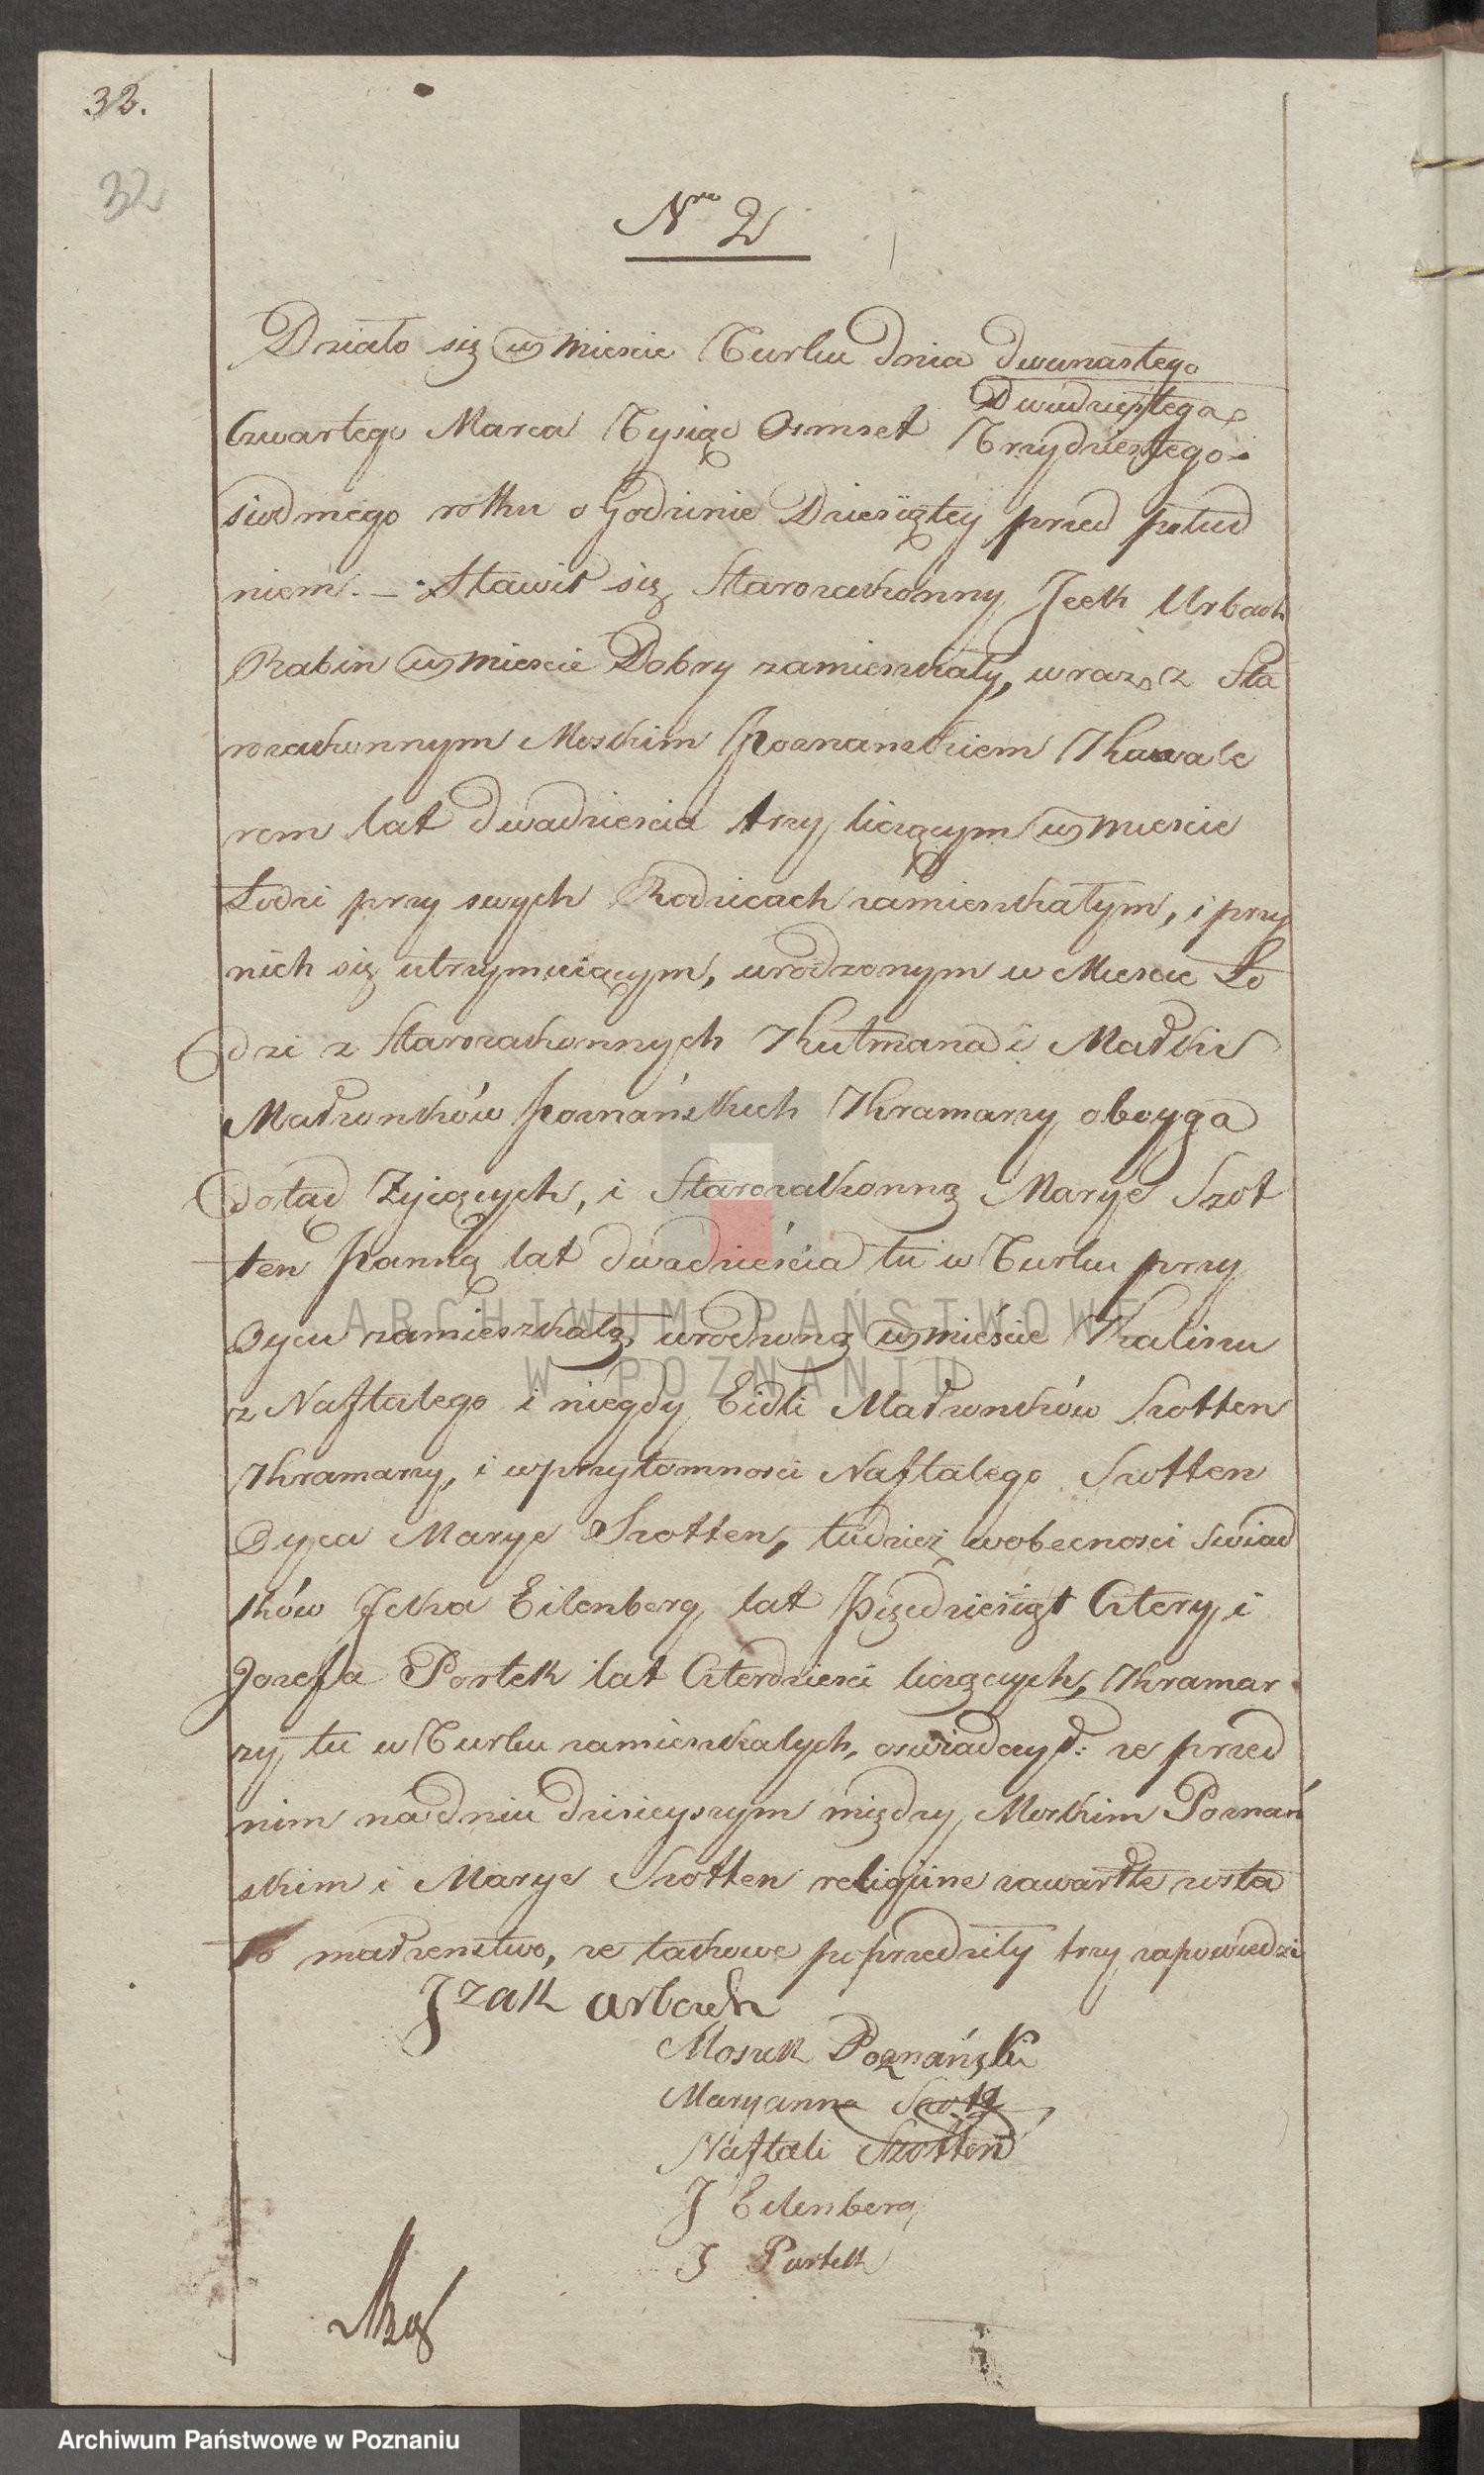 32.
32
Nro 2
Działo się w Miescie Turku dnia dwunastego
Dwudziestego
Czwartego Marca Tysiąc Osmset Trzydziestego
siodmego roku o Godzinie Dziesiątey przed połud
niem. – Stawił się Starozakonny Icek Urbach
Rabin w Miescie Dobry zamieszkały, wraz z Sta
rozakonnym Moskim Poznanskiem Kawale
rem lat dwadziescia trzy liczącym w Miescie
Łodzi przy swych Rodzicach zamieszkałym, i przy
nich się utrzymuiącym, urodzonym w Miescie Ło
dzi z Starozakonnych Kutmana i Małki
Małżonków Poznańskich Kramarzy oboyga
dotąd Żyiących, i Starozakonną Marye Szot
ten Panną lat dwadzieścia tu w Turku przy
Oycu zamieszkałą, urodzoną w mieście Kaliszu
z Naftalego i niegdy Eidli Małżonków Szotten
Kramarzy, i w przytomnosci Naftalego Szotten
Oyca Marye Szotten, tudzież w obecnosci Swiad
ków Icka Eilenberg lat Pięćdziesiąt Cztery i
Jozefa Portek lat Czterdziesci liczących, Kramar
zy tu w Turku zamieszkałych, oswiadczył: ze przed
nim na dniu dzisieyszym między Moskim Poznań
skim i Marye Szotten religijne zawarte zosta
ło małzenstwo, ze takowe poprzedziły trzy zapowiedzi
Izak Urbach
Mosiek Poznański
Maryanna
Naftali Szotten
J Eilenberg
J Portek
ARCHIWUM PAŃSTWOWE
W POZNANIU
Archiwum Państwowe w Poznaniu